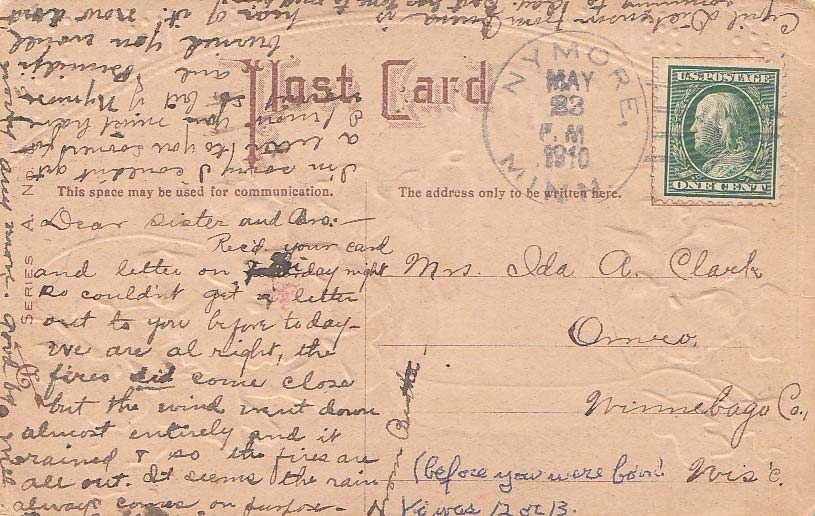 Post Card
NYMORE,
MAY
23
P.M
1910
MINN.
U.S. POSTAGE
ONE CENT
This space may be used for communication.
The address only to be written here.
SERIES A. NR.
Dear Sister and Bro:-
Rec'd your card
and letter on Friday night
so couldn't get a letter
out to you before today-
We are al right, the
fires did come close
but the wind went down
almost entirely and it
rained & so the fires are
all out. It seems the rain
always comes on purpose-
I'm sorry I couldn't get
a letter to you sooner for
I know you must have
bit of Nymore
and Bemidji
burned you would
hear of it. now don't
Cyril Dickenson from
worry any more. Good bye
Mrs. Ida A. Clark
Omro,
Winnebago Co.,
Wis'c.
(before you were born!
Vi was 12 or 13.